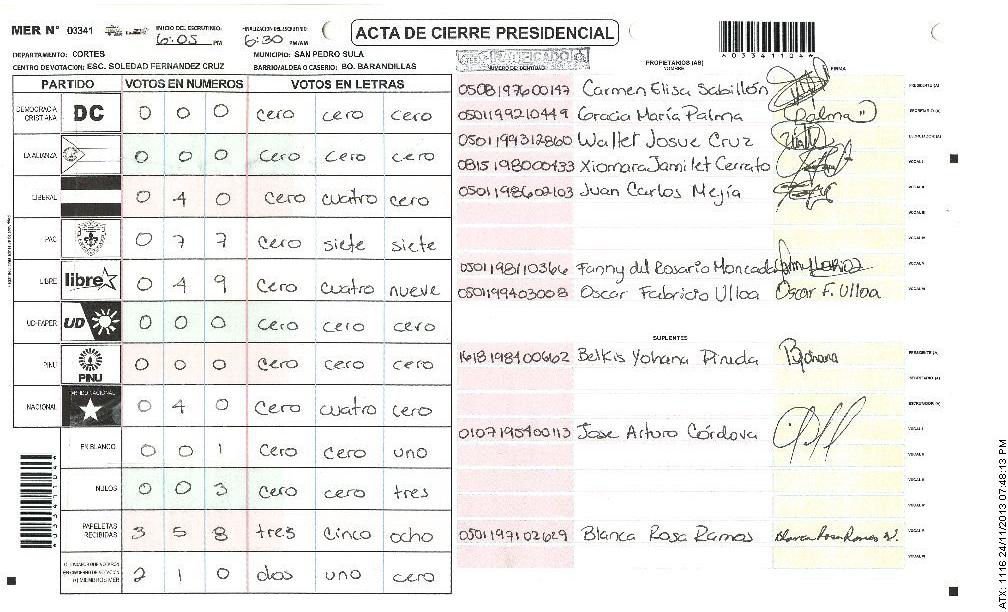 MER N° 03341 INICIO DE ESCRUTINIO: 6:05 PM FINALIZACION DE ESCRUTINIO: 6:30 PM/AM ACTA DE CIERRE PRESIDENCIAL
A03341104
DEPARTAMENTO: CORTES MUNICIPIO: SAN PEDRO SULA
CENTRO DE VOTACION: ESC. SOLEDAD FERNANDEZ CRUZ BARRIO/ALDEA O CASERIO: BO. BARANDILLAS
NUMERO DE IDENTIDAD PROPIETARIOS (AS) NOMBRE FIRMA
PARTIDO VOTOS EN NUMEROS VOTOS EN LETRAS
DEMOCRACIA CRISTIANA DC 0 0 0 cero cero cero
LA ALIANZA 0 0 0 cero cero cero
LIBERAL 0 4 0 cero cuatro cero
PAC 0 7 7 cero siete siete
LIBRE libre 0 4 9 cero cuatro nueve
UD-FAPER UD 0 0 0 cero cero cero
PINU PINU 0 0 0 cero cero cero
NACIONAL PARTIDO NACIONAL 0 4 0 cero cuatro cero
EN BLANCO 0 0 1 cero cero uno
NULOS 0 0 3 cero cero tres
PAPELETAS RECIBIDAS 3 5 8 tres cinco ocho
2 1 0 dos uno cero
0508197600147 Carmen Elisa Sabillón PRESIDENTE (A)
0501199210449 Gracia María Palma Palma SECRETARIO (A)
0501199312860 Wallet Josue Cruz Wallet ESCRUTADOR (A)
0815198000433 Xiomara Jamilet Cerrato VOCAL I
0501198602103 Juan Carlos Mejía VOCAL II
VOCAL III
VOCAL IV
0501198110366 Fanny del Rosario Moncada VOCAL V
0501199403008 Oscar Fabricio Ulloa Oscar F. Ulloa VOCAL VI
SUPLENTES
1618198400662 Belkis Yohana Pineda Yohana PRESIDENTE (A)
SECRETARIO (A)
ESCRUTADOR (A)
0107195400113 Jose Arturo Córdova VOCAL I
VOCAL II
VOCAL III
VOCAL IV
0501197102629 Blanca Rosa Ramos Blanca Rosa Ramos VOCAL V
VOCAL VI
ATX: 1116 24/11/2013 07:48:13 PM